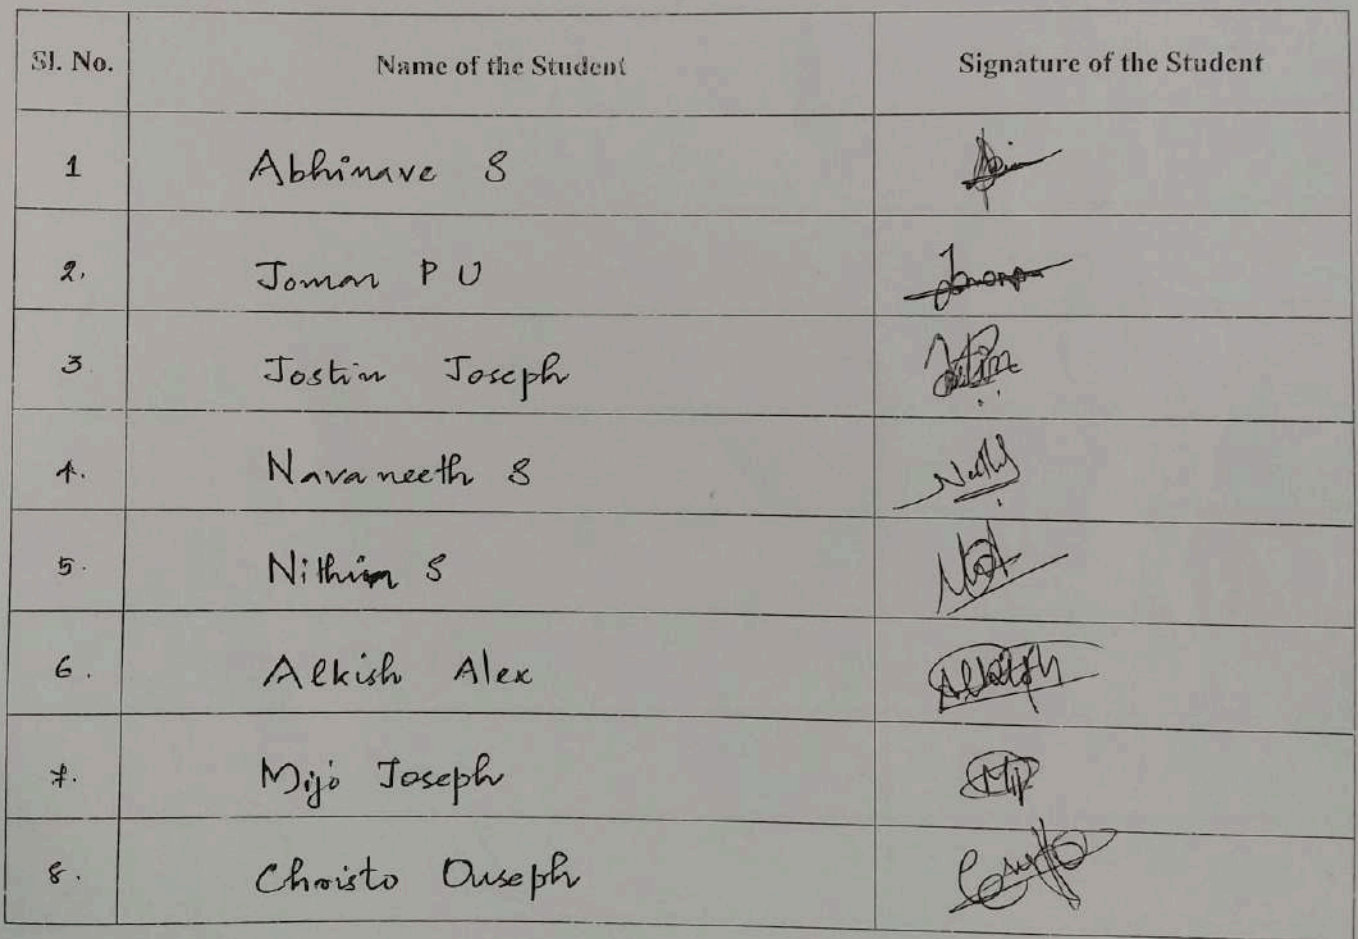 Sl. No. Name of the Student Signature of the Student
1 Abhinave S
2. Joman P U
3 Jostin Joseph
4. Navaneeth S
5. Nithin S
6. Alkish Alex
7. Mijo Joseph
8. Christo Ouseph